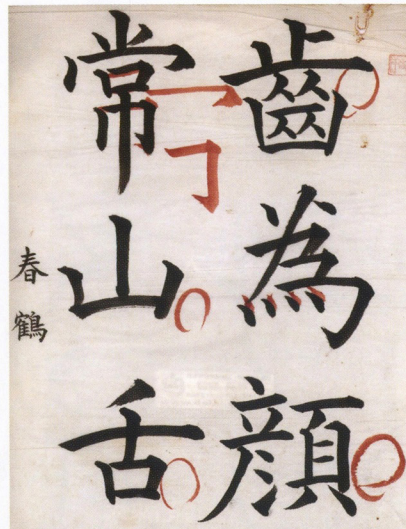 齒為顏
常山舌
春鶴